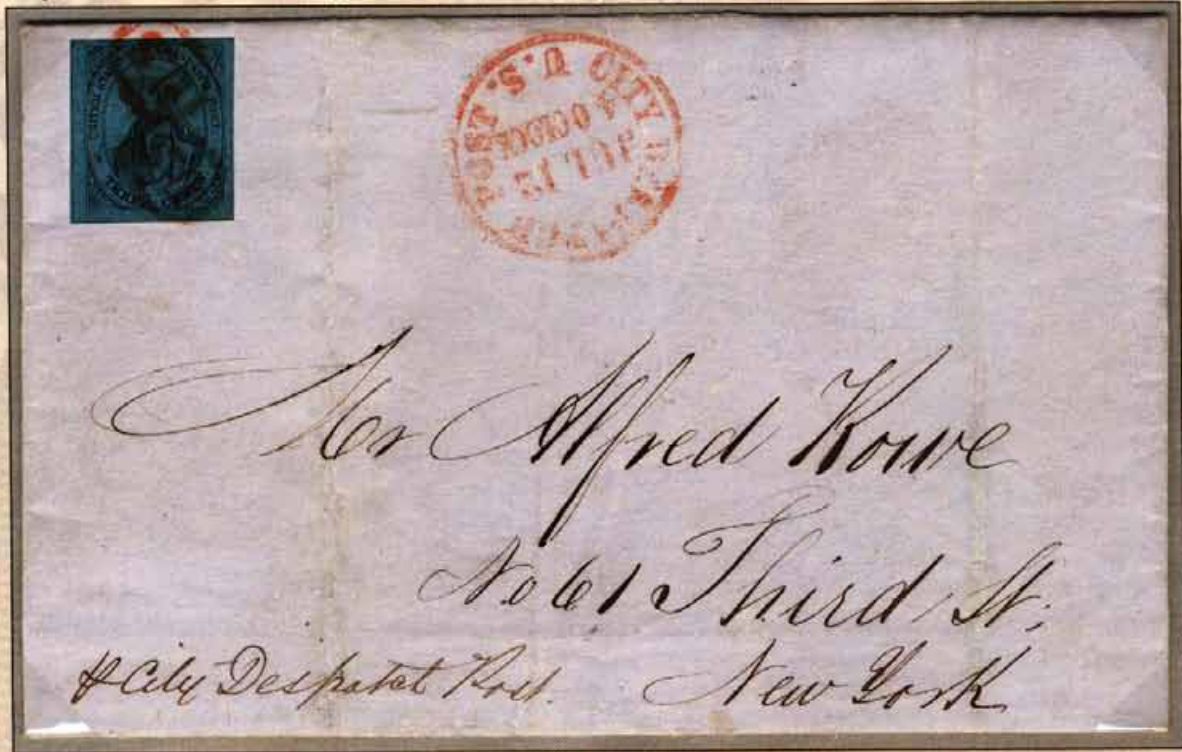 U.S. CITY DESPATCH POST
JUL 12
4 OCLOCK
Mr Alfred Rowe
No 61 Third St.
New York
City Despatch Post.